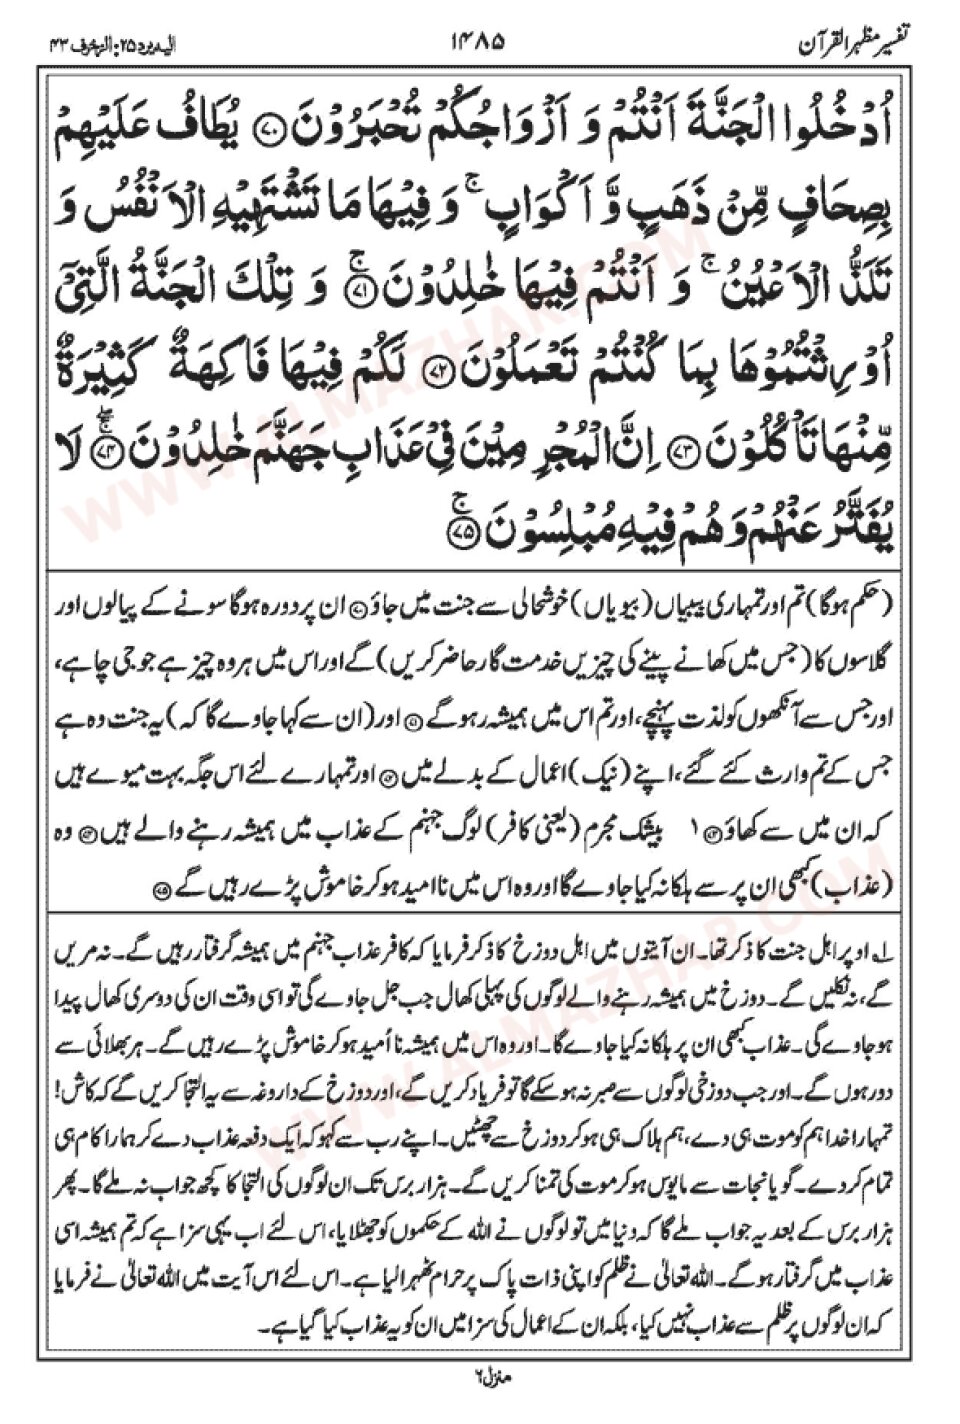 تفسیر مظہر القرآن
۱۴۸۵
الیہ یرد ۲۵: الزخرف ۴۳
اُدْخُلُوا الْجَنَّةَ اَنْتُمْ وَ اَزْوَاجُكُمْ تُحْبَرُوْنَ ﴿۷۰﴾ يُطَافُ عَلَيْهِمْ
بِصِحَافٍ مِّنْ ذَهَبٍ وَّ اَكْوَابٍ ۚ وَ فِيْهَا مَا تَشْتَهِيْهِ الْاَنْفُسُ وَ
تَلَذُّ الْاَعْيُنُ ۚ وَ اَنْتُمْ فِيْهَا خٰلِدُوْنَ ﴿۷۱﴾ ۚ وَ تِلْكَ الْجَنَّةُ الَّتِيْۤ
اُوْرِثْتُمُوْهَا بِمَا كُنْتُمْ تَعْمَلُوْنَ ﴿۷۲﴾ لَكُمْ فِيْهَا فَاكِهَةٌ كَثِيْرَةٌ
مِّنْهَا تَاْكُلُوْنَ ﴿۷۳﴾ اِنَّ الْمُجْرِمِيْنَ فِيْ عَذَابِ جَهَنَّمَ خٰلِدُوْنَ ﴿۷۴﴾ ۚ لَا
يُفَتَّرُ عَنْهُمْ وَهُمْ فِيْهِ مُبْلِسُوْنَ ﴿۷۵﴾ ۚ
(حکم ہوگا) تم اور تمہاری بیبیاں (بیویاں) خوشحالی سے جنت میں جاؤ ﴿۷۰﴾ ان پر دورہ ہوگا سونے کے پیالوں اور
گلاسوں کا (جس میں کھانے پینے کی چیزیں خدمت گار حاضر کریں) گے اور اس میں ہر وہ چیز ہے جو جی چاہے،
اور جس سے آنکھوں کو لذت پہنچے، اور تم اس میں ہمیشہ رہو گے ﴿۷۱﴾ اور (ان سے کہا جاوے گا کہ) یہ جنت وہ ہے
جس کے تم وارث کئے گئے، اپنے (نیک) اعمال کے بدلے میں ﴿۷۲﴾ اور تمہارے لئے اس جگہ بہت میوے ہیں
کہ ان میں سے کھاؤ ﴿۷۳﴾ ۱ بیشک مجرم (یعنی کافر) لوگ جہنم کے عذاب میں ہمیشہ رہنے والے ہیں ﴿۷۴﴾ وہ
(عذاب) کبھی ان پر سے ہلکا نہ کیا جاوے گا اور وہ اس میں ناامید ہو کر خاموش پڑے رہیں گے ﴿۷۵﴾
۱ اوپر اہل جنت کا ذکر تھا۔ ان آیتوں میں اہل دوزخ کا ذکر فرمایا کہ کافر عذاب جہنم میں ہمیشہ گرفتار رہیں گے۔ نہ مریں
گے، نہ نکلیں گے۔ دوزخ میں ہمیشہ رہنے والے لوگوں کی پہلی کھال جب جل جاوے گی تو اسی وقت ان کی دوسری کھال پیدا
ہو جاوے گی۔ عذاب کبھی ان پر ہلکا نہ کیا جاوے گا۔ اور وہ اس میں ہمیشہ نا اُمید ہو کر خاموش پڑے رہیں گے۔ ہر بھلائی سے
دور ہوں گے۔ اور جب دوزخی لوگوں سے صبر نہ ہو سکے گا تو فریاد کریں گے، اور دوزخ کے داروغہ سے یہ التجا کریں گے کہ کاش!
تمہارا خدا ہم کو موت ہی دے، ہم ہلاک ہی ہو کر دوزخ سے چھٹیں۔ اپنے رب سے کہو کہ ایک دفعہ عذاب دے کر ہمارا کام ہی
تمام کر دے۔ گویا نجات سے مایوس ہو کر موت کی تمنا کریں گے۔ ہزار برس تک ان لوگوں کی التجا کا کچھ جواب نہ ملے گا۔ پھر
ہزار برس کے بعد یہ جواب ملے گا کہ دنیا میں تو لوگوں نے اللہ کے حکموں کو جھٹلایا، اس لئے اب یہی سزا ہے کہ تم ہمیشہ اسی
عذاب میں گرفتار ہو گے۔ اللہ تعالیٰ نے ظلم کو اپنی ذات پاک پر حرام ٹھہرا لیا ہے۔ اس لئے اس آیت میں اللہ تعالیٰ نے فرمایا
کہ ان لوگوں پر ظلم سے عذاب نہیں کیا، بلکہ ان کے اعمال کی سزا میں ان کو یہ عذاب کیا گیا ہے۔
منزل ۶
WWW.ALMAZHAR.COM
WWW.ALMAZHAR.COM